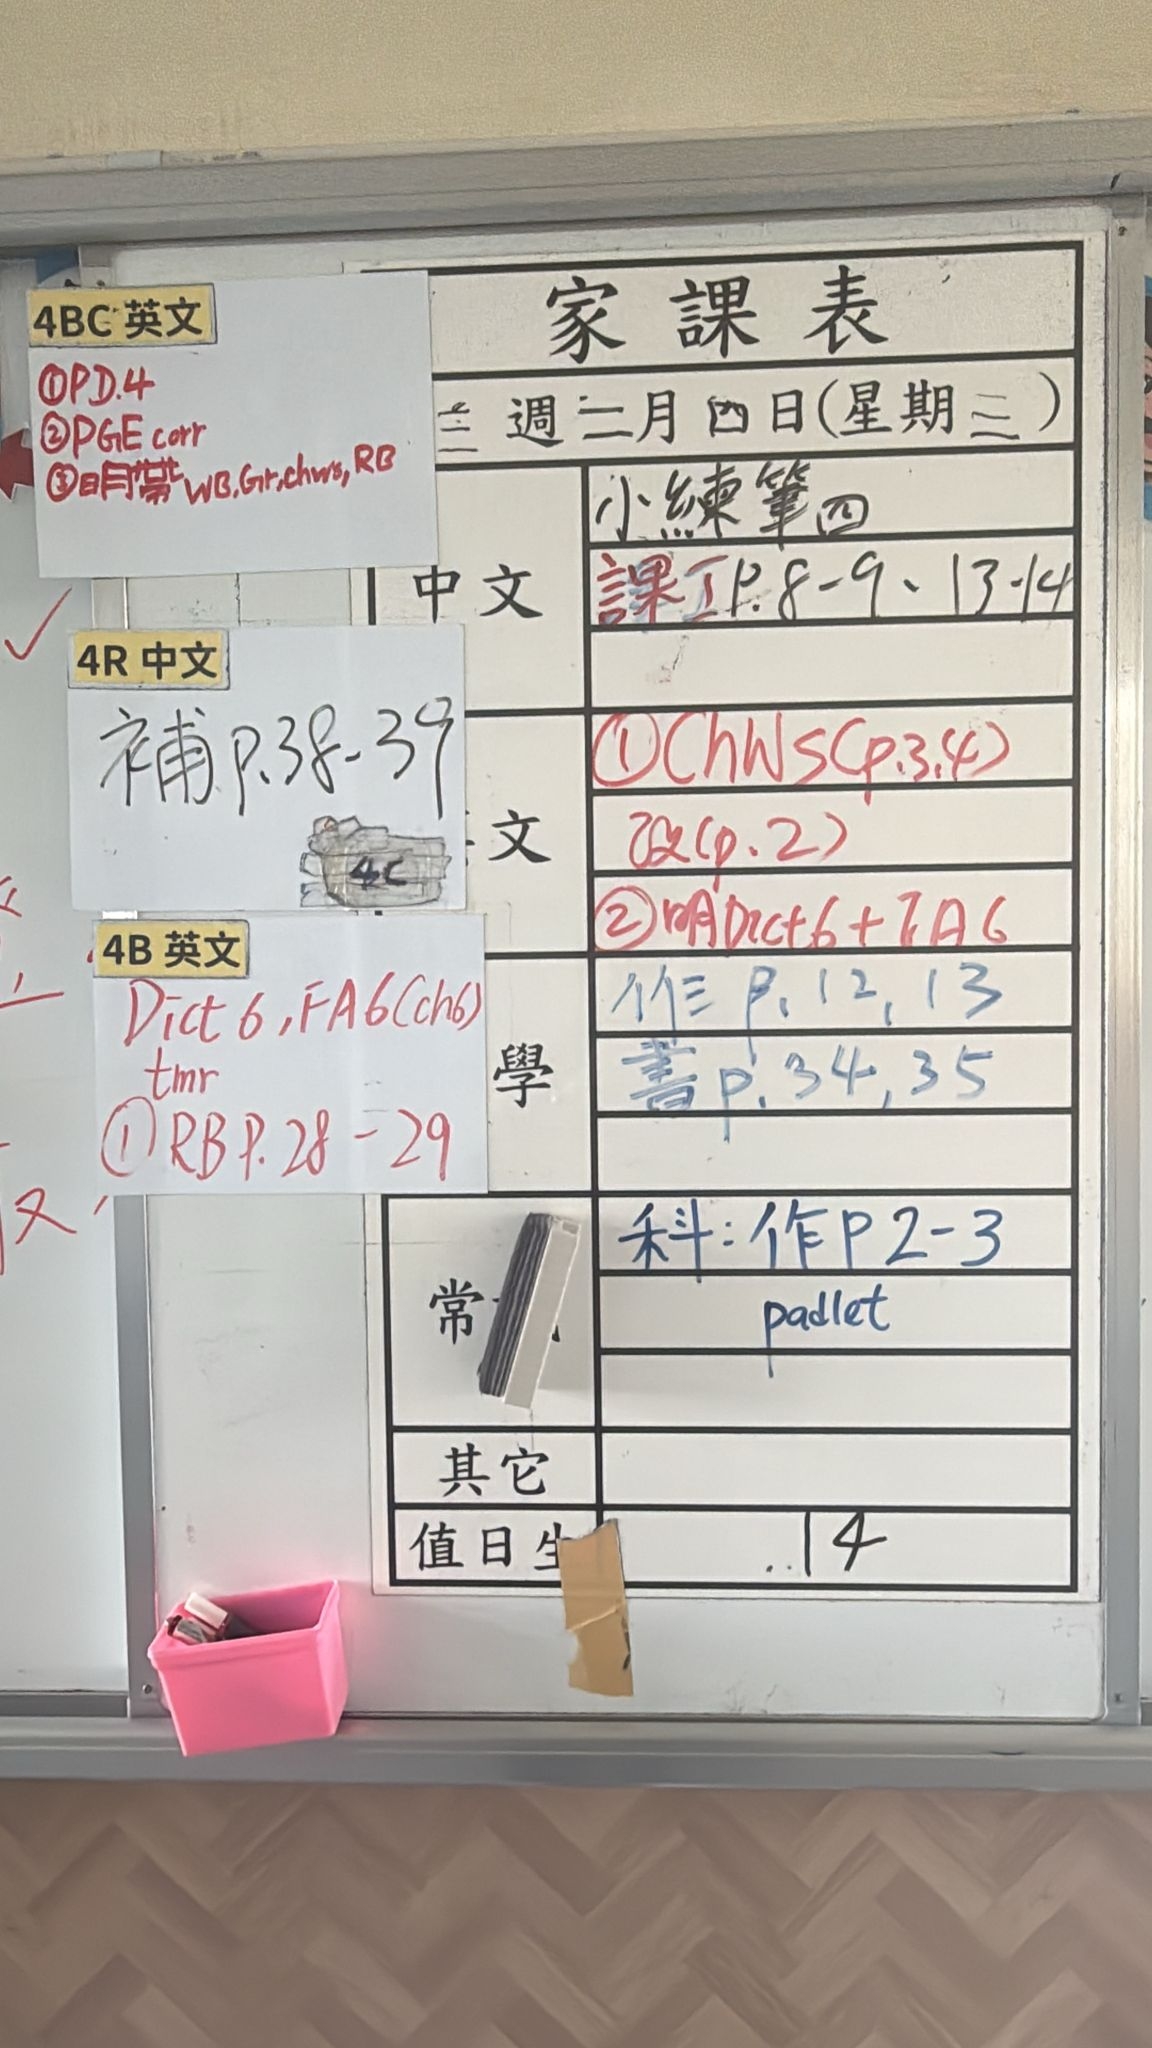 家課表
三週二月四日(星期三)
4BC 英文
①PD.4
②PGE corr
③明帶WB,Gr,chws,RB
中文
小練筆四
課工P.8-9、13-14
4R 中文
補p.38-39
4C
文
①ChWs(p.3,4)
改(p.2)
②明Dict6+FA6
4B 英文
Dict 6,FA6(ch6)
tmr
①RB P.28-29
學
作p.12,13
書p.34,35
常
科:作P2-3
padlet
其它
值日生
14